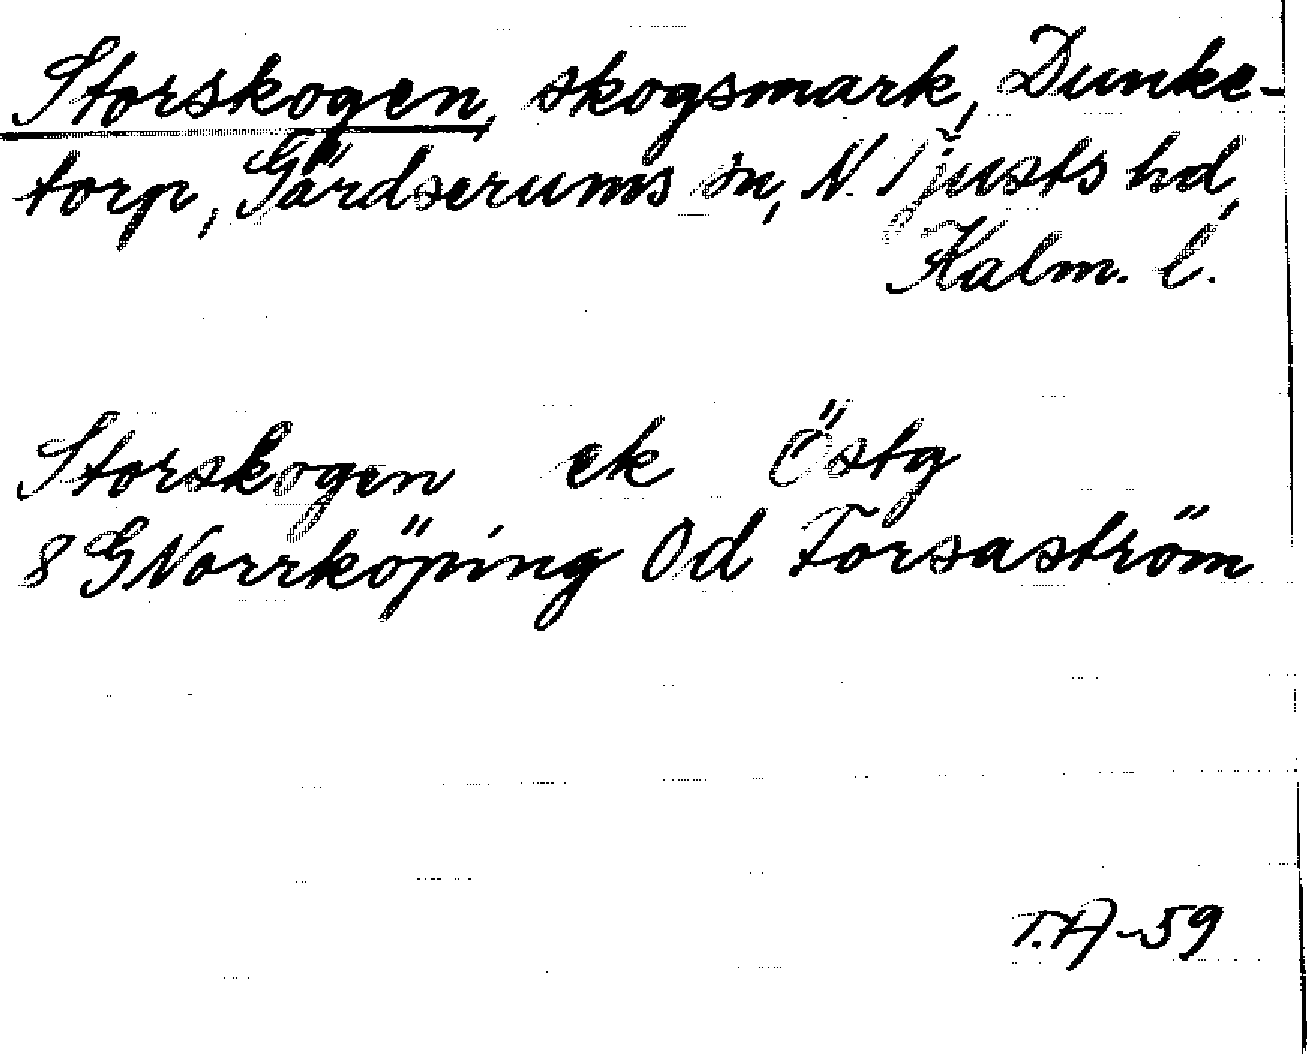 Storskogen, skogsmark, Dunke-
torp, Gärdserums sn, N. Tjusts hd,
Kalm. l.
Storskogen ek Östg
8 G Norrköping Od Forsaström
T.A-59